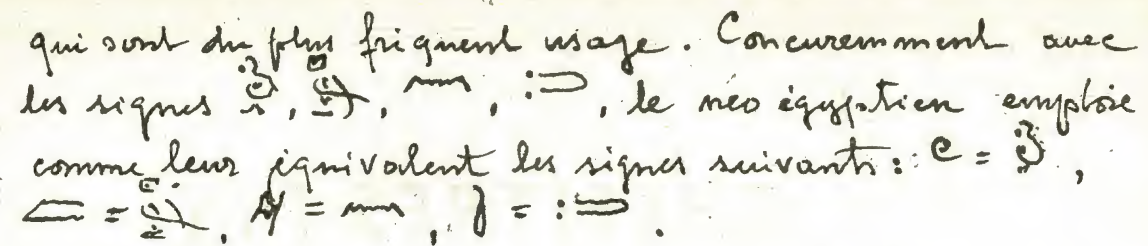 qui sont du plus friquent usage. Concuremment avec
les signes , , , , le néo égyptien emploie
comme leur équivalent les signes suivants : = ,
= , = , = .